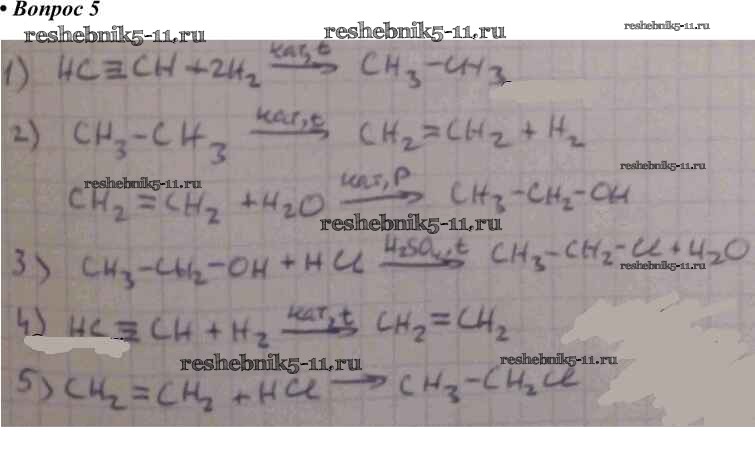 • Вопрос 5
reshebnik5-11.ru
reshebnik5-11.ru
reshebnik5-11.ru
1) HC≡CH + 2H₂ —кат,t→ CH₃–CH₃
2) CH₃–CH₃ —кат,t→ CH₂=CH₂ + H₂
reshebnik5-11.ru
reshebnik5-11.ru
CH₂=CH₂ + H₂O —кат,P→ CH₃–CH₂–OH
reshebnik5-11.ru
3) CH₃–CH₂–OH + HCl —H₂SO₄,t→ CH₃–CH₂–Cl + H₂O
reshebnik5-11.ru
4) HC≡CH + H₂ —кат,t→ CH₂=CH₂
reshebnik5-11.ru
reshebnik5-11.ru
5) CH₂=CH₂ + HCl → CH₃–CH₂Cl